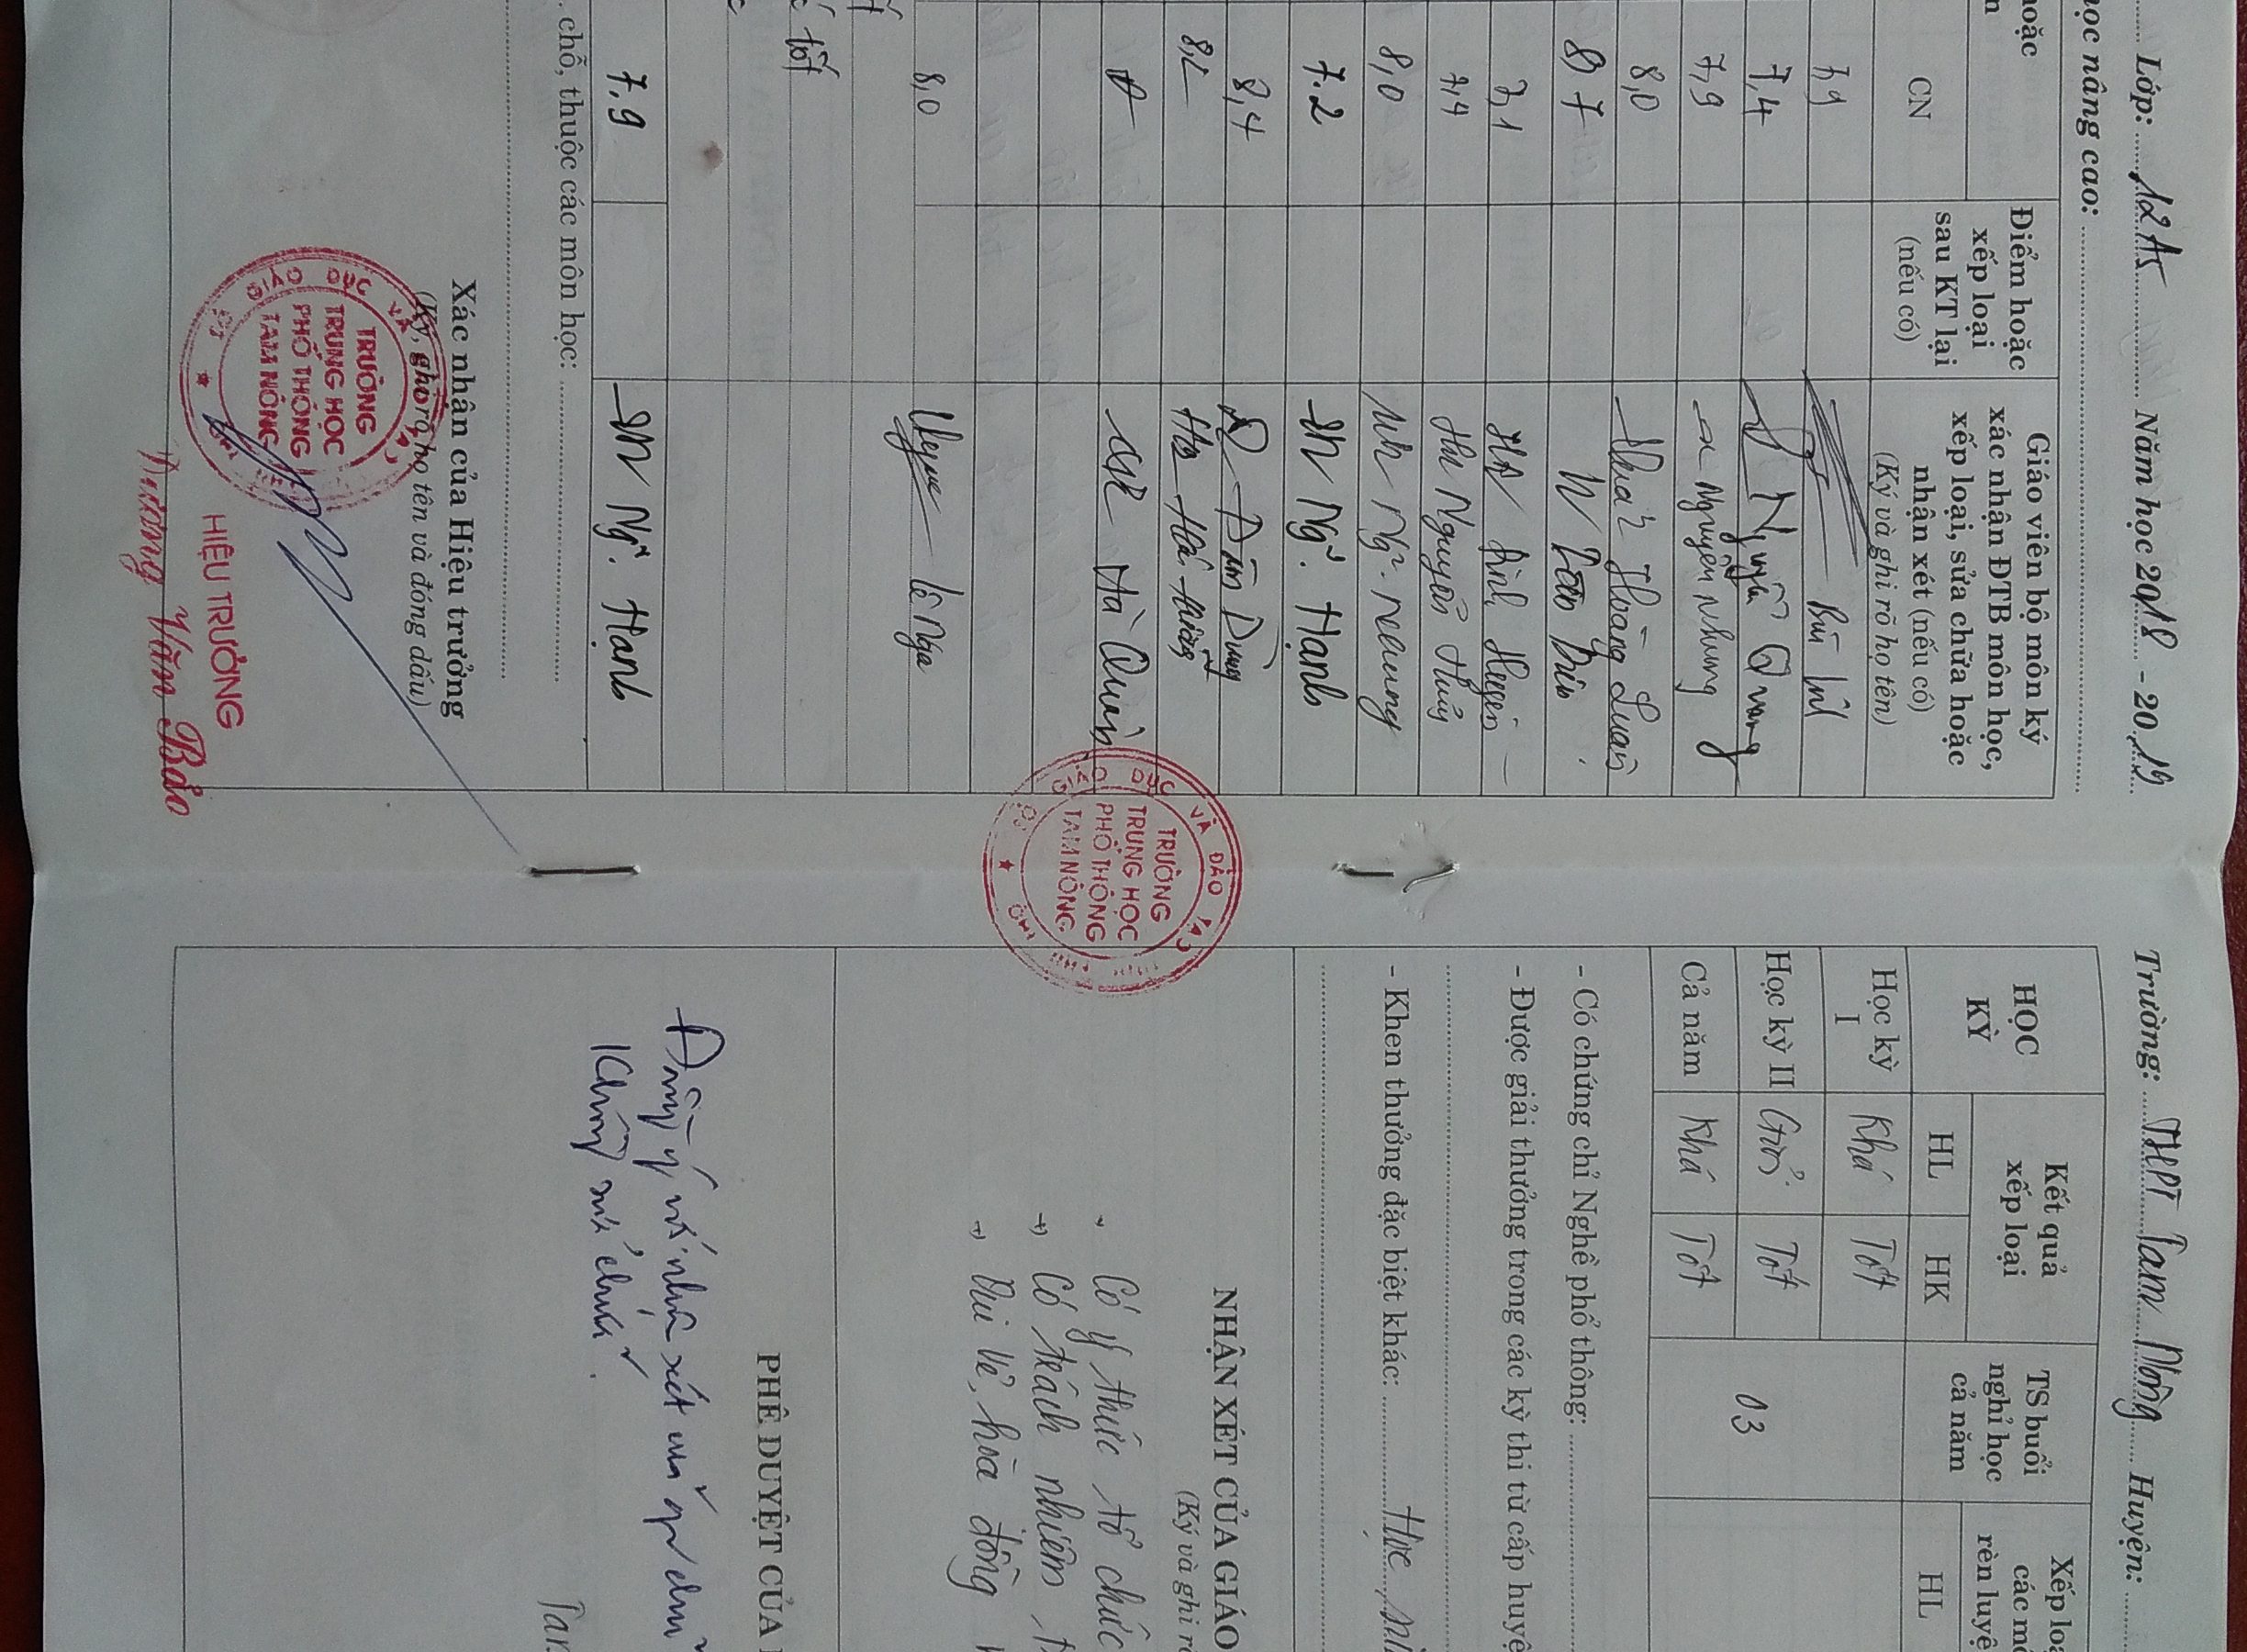 Lớp: 12A5 Năm học 2018 - 2019
học nâng cao:
hoặc
CN
Điểm hoặc
xếp loại
sau KT lại
(nếu có)
Giáo viên bộ môn ký
xác nhận ĐTB môn học,
xếp loại, sửa chữa hoặc
nhận xét (nếu có)
(Ký và ghi rõ họ tên)
7,9 Bùi
7,4 Nguyễn Quang
7,9 Nguyễn Nhung
8,0 Hoàng Luân
8,7
7,1 Đinh Huyên
7,4 Nguyễn Thủy
8,0
7.2 Ng. Hạnh
8,4 Đàm Dung
8,2 Hà Hường
Đ Hà Quân
8,0 Lê Nga
tốt
7,9 Ng. Hạnh
chỗ, thuộc các môn học:
Xác nhận của Hiệu trưởng
(Ký, ghi rõ họ tên và đóng dấu)
GIÁO DỤC VÀ
TRƯỜNG
TRUNG HỌC
PHỔ THÔNG
TAM NÔNG
HIỆU TRƯỞNG
Dương Văn Bảo
GIÁO DỤC VÀ ĐÀO TẠO
TRƯỜNG
TRUNG HỌC
PHỔ THÔNG
TAM NÔNG
Trường: THPT Tam Nông Huyện:
HỌC
KỲ
Kết quả
xếp loại
HL HK
TS buổi
nghỉ học
cả năm
Xếp loạ
các mô
rèn luyệ
HL
Học kỳ
I
Khá Tốt
Học kỳ II Giỏi Tốt
Cả năm Khá Tốt
03
- Có chứng chỉ Nghề phổ thông:
- Được giải thưởng trong các kỳ thi từ cấp huyệ
- Khen thưởng đặc biệt khác:
NHẬN XÉT CỦA GIÁO
(Ký và ghi rõ
Có ý thức tổ chức
Có trách nhiệm
Vui vẻ, hòa đồng
PHÊ DUYỆT CỦA
Đồng ý với nhận xét của
Không sửa chữa.